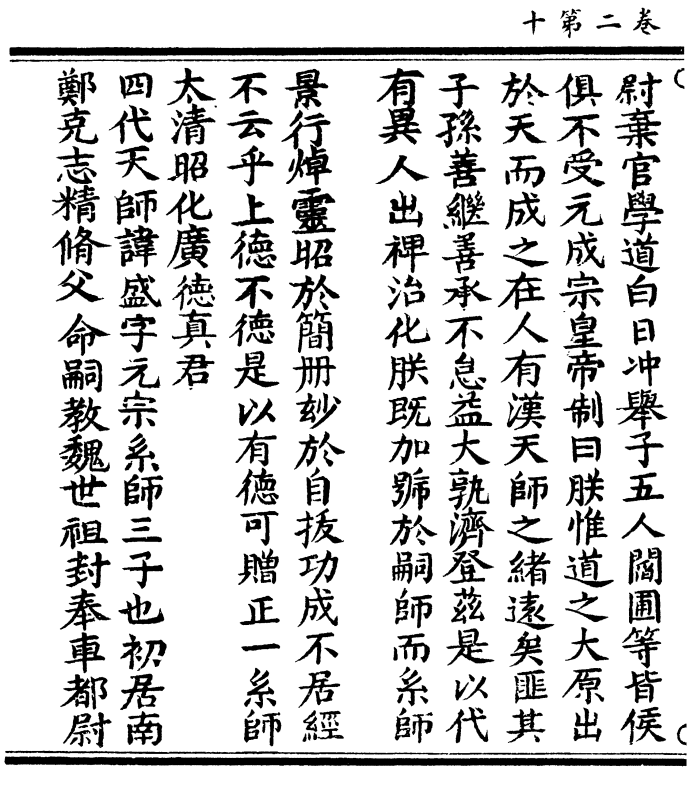 卷二第十
尉棄官學道白日冲舉子五人閻圃等皆侯
俱不受元成宗皇帝制曰朕惟道之大原出
於天而成之在人有漢天師之緒遠矣匪其
子孫善繼善承不怠益大孰濟登茲是以代
有異人出裨治化朕既加號於嗣師而系師
景行焯靈昭於簡册玅於自拔功成不居經
不云乎上德不德是以有德可贈正一系師
太清昭化廣德真君
四代天師諱盛字元宗系師三子也初居南
鄭克志精脩父命嗣教魏世祖封奉車都尉